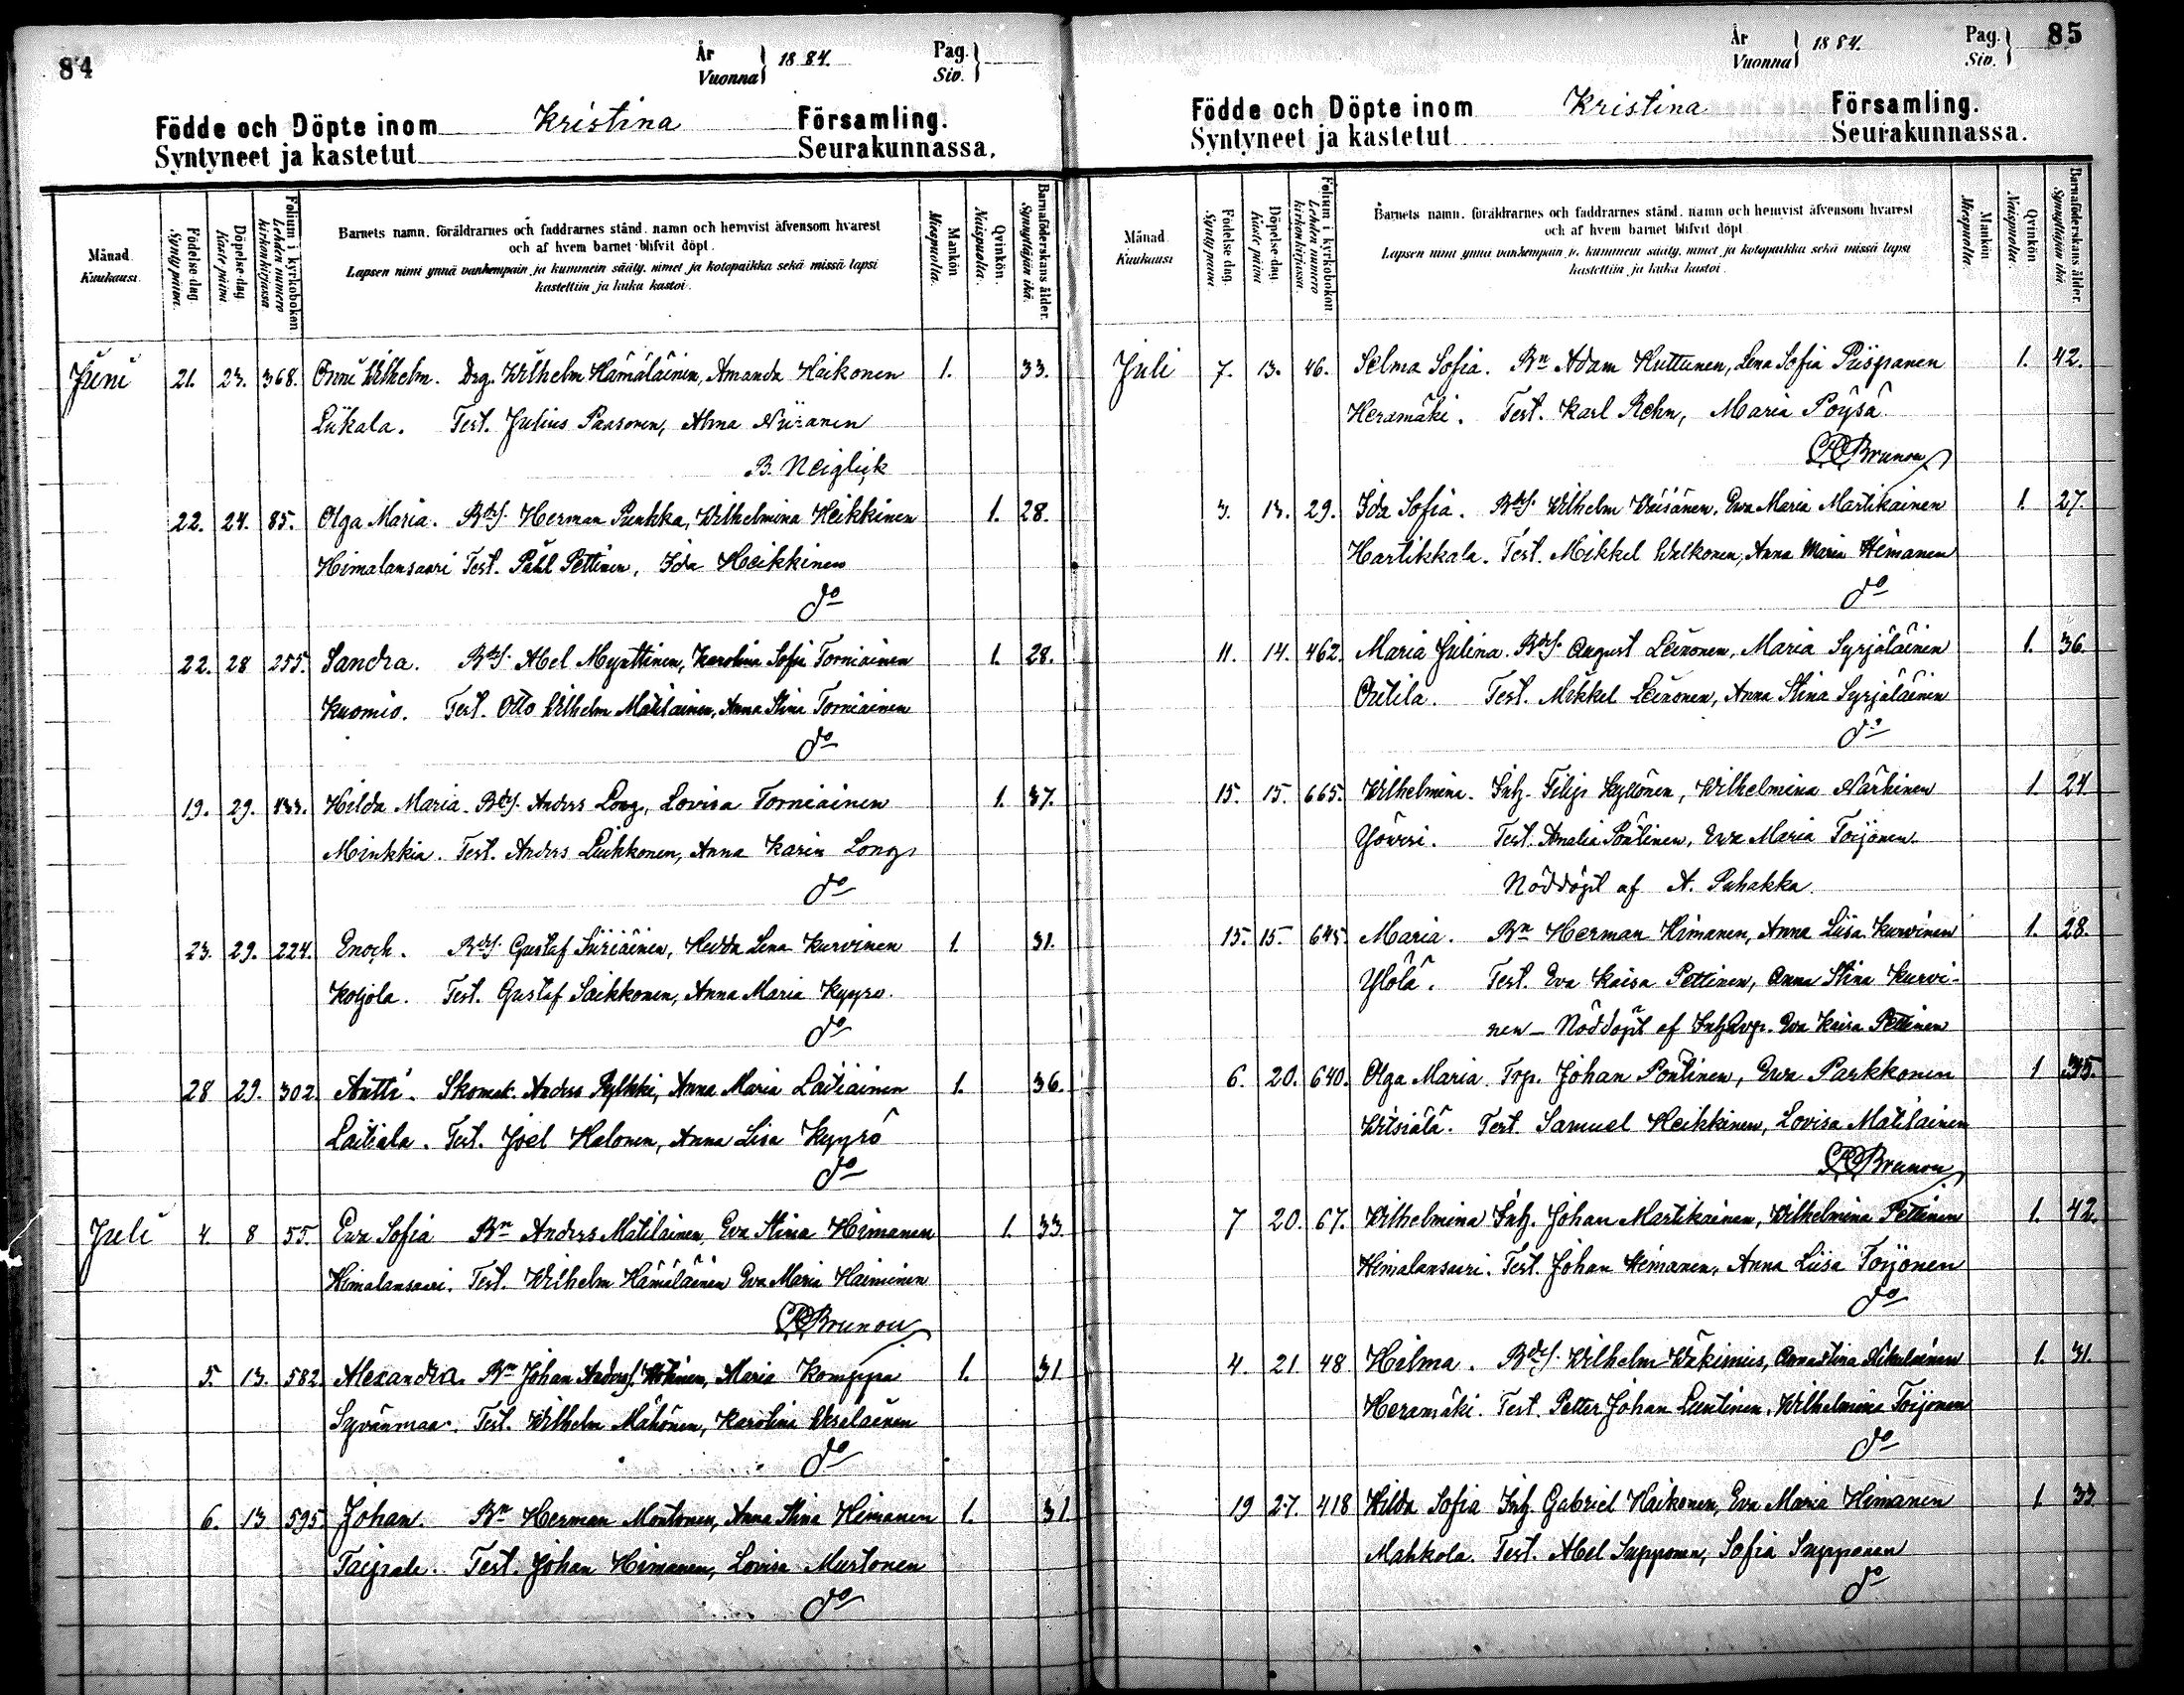 84
År
Vuonna
1884.
Pag.
Siv.
Födde och Döpte inom Kristina Församling.
Syntyneet ja kastetut Seurakunnassa.
Månad
Kuukausi.
Födelse-dag.
Synty päivä.
Döpelse-dag.
Kaste päivä
Folium i kyrkoboken
Lehden numero kirkonkirjassa
Barnets namn, föräldrarnes och faddrarnes stånd, namn och hemvist äfvensom hvarest
och af hvem barnet blifvit döpt.
Lapsen nimi ynnä vanhempain ja kummein sääty, nimet ja kotopaikka sekä missä lapsi
kastettiin ja kuka kastoi.
Mankön
Miespuolta.
Qvinkön.
Naispuolta.
Barnaföderskans ålder.
Synnyttäjän ikä.
Juni 21. 23. 368. Onni Wilhelm. Drg. Wilhelm Hämäläinen, Amanda Haikonen 1. 33.
Liikala. Test. Julius Paasonen, Alma
B. Neiglick
22. 24. 85. Olga Maria. Bdes. Herman Punkka, Wilhelmina Heikkinen 1. 28.
Himalansaari Test. Påhl Pettinen, Ida Heikkinen
do
22. 28 255. Sandra. Bdes. Abel Mynttinen, Karolina Sofia Torniainen 1. 28.
Kuomio. Test. Otto Wilhelm Matilainen, Anna Stina Torniainen
do
19. 29. Hilda Maria. Bdes. Anders Long, Lovisa Torniainen 1. 37.
Minkkia. Test. Anders Liukkonen, Anna Karin Long
do
23. 29. 224. Enoch. Bdes. Gustaf Siiriäinen, Hedda Lena Kurvinen 1. 31.
Koljola. Test. Gustaf Saikkonen, Anna Maria Kyyrö.
do
28 29. 302 Antti. Skomak. Anders Pylkki, Anna Maria Laitiainen 1. 36.
Laitiala. Test. Joel Halonen, Anna Lisa Kyyrö
do
Juli 4. 8 55. Eva Sofia Bn Anders Matilainen, Eva Stina Himanen 1. 33.
Himalansaari. Test. Wilhelm Hämäläinen Eva Maria Haiminen
Brunou
5. 13. 582. Alexandra. Bn Johan Anders. Maria Komppa 1. 31
Syvänmaa. Test. Wilhelm Mähönen, Karolina
do
6. 13 595 Johan. Bn Herman Montonen, Anna Stina Himanen 1. 31.
Taipale. Test. Johan Himanen, Lovisa Murtonen
do
85
År
Vuonna
1884.
Pag.
Siv.
Födde och Döpte inom Kristina Församling.
Syntyneet ja kastetut Seurakunnassa.
Månad
Kuukausi
Födelse dag.
Synty päivä.
Döpelse-dag.
Kaste päivä
Folium i kyrkoboken
Lehden numero kirkonkirjassa.
Barnets namn, föräldrarnes och faddrarnes stånd, namn och hemvist äfvensom hvarest
och af hvem barnet blifvit döpt
Lapsen nimi ynnä vanhempain ja kummein sääty, nimet ja kotopaikka sekä missä lapsi
kastettiin ja kuka kastoi.
Mankön
Miespuolta.
Qvinkön
Naispuolta.
Barnaföderskans ålder.
Synnyttäjän ikä.
Juli 7. 13. 46. Selma Sofia. Bn Adam Huttunen, Lena Sofia Piispanen 1. 42.
Heramäki. Test. Karl Rehn, Maria Pöysä
Brunou
3. 13. 29. Ida Sofia. Bdes. Wilhelm Väisänen, Eva Maria Martikainen 1. 27.
Hartikkala. Test. Mikkel Valkonen, Anna Maria Himanen
do
11. 14. 462 Maria Julina. Bdes. August Leinonen, Maria Syrjäläinen 1. 36.
Outila. Test. Mikkel Leinonen, Anna Stina Syrjäläinen
do
15. 15. 665. Wilhelmina. Inh. Filip Kyllönen, Wilhelmina Närhinen 1. 24.
Yövesi. Test. Amalia Pöntinen, Eva Maria Toijonen.
Nöddöpt af A. Puhakka.
15. 15. 645 Maria. Bn Herman Himanen, Anna Liisa Kurvinen 1. 28.
Ylölä. Test. Eva Kaisa Pettinen, Anna Stina Kurvi-
nen – Nöddöpt af Eva Kaisa Pettinen
6. 20. 640. Olga Maria. Trp. Johan Pöntinen, Eva Parkkonen 1
Vitsiälä. Test. Samuel Heikkinen, Lovisa Matilainen
Brunou
7 20. 67. Wilhelmina Inh. Johan Martikainen, Wilhelmina Pettinen 1. 42.
Himalansaari. Test. Johan Himanen, Anna Liisa Toijonen
do
4. 21 48 Hilma. Bdes. Wilhelm Annastina Nikulainen 1. 31.
Heramäki. Test. Petter Johan Luntinen, Wilhelmina Toijonen
do
19 27. 418 Hilda Sofia Inh. Gabriel Haikonen, Eva Maria Himanen 1. 33
Mahkola. Test. Abel Supponen, Sofia Supponen
do